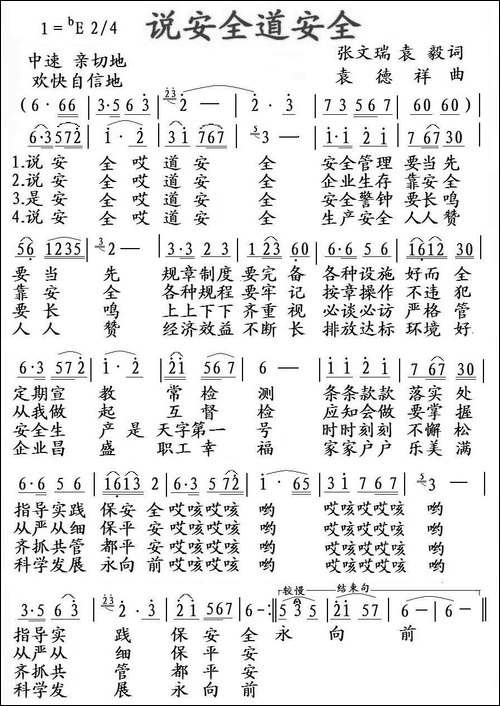 说安全道安全
1=ᵇE 2/4
中速 亲切地
欢快自信地
张文瑞 袁毅词
袁德祥 曲
(6·66 | 3·563 | 2— | 2·3 | 73567 | 6060) |
6·3572 | 1·2 | 31767 | 3— | 1·121 | 76730 |
1.说安 全哎 道安 全 安全管理 要当先
2.说安 全哎 道安 全 企业生存 靠安全
3.是安 全哎 道安 全 安全警钟 要长鸣
4.说安 全哎 道安 全 生产安全 人人赞
561235 | 2— | 3·323 | 12360 | 6·656 | 161230 |
要当 先 规章制度 要完备 各种设施 好而全
靠安 全 各种规程 要牢记 按章操作 不违犯
要长 鸣 上上下下 齐重视 必谈必访 严格管
人人 赞 经济效益 不断长 排放达标 环境好
6·3572 | 1·2 | 31567 | 6— | 1121 | 76730 |
定期宣 教 常检 测 条条款款 落实处
从我做 起 互督 检 应知会做 要掌握
安全生 产是 天字第一 号 时时刻刻 不懈松
企业昌 盛 职工幸 福 家家户户 乐美满
6·656 | 16132 | 6·3572 | 1·65 | 3·212 | 3— |
指导实践 保安全 哎咳哎咳 哟 哎咳哎咳 哟
从严从细 保平安 哎咳哎咳 哟 哎咳哎咳 哟
齐抓共管 都平安 哎咳哎咳 哟 哎咳哎咳 哟
科学发展 永向前 哎咳哎咳 哟 哎咳哎咳 哟
较慢 结束句
3·563 | 2·3 | 21567 | 6— :‖ 535 | 2157 | 6— | 6— ‖
指导实 践 保安 全 永 向 前
从严从 细 保平 安
齐抓共 管 都平 安
科学发 展 永向 前